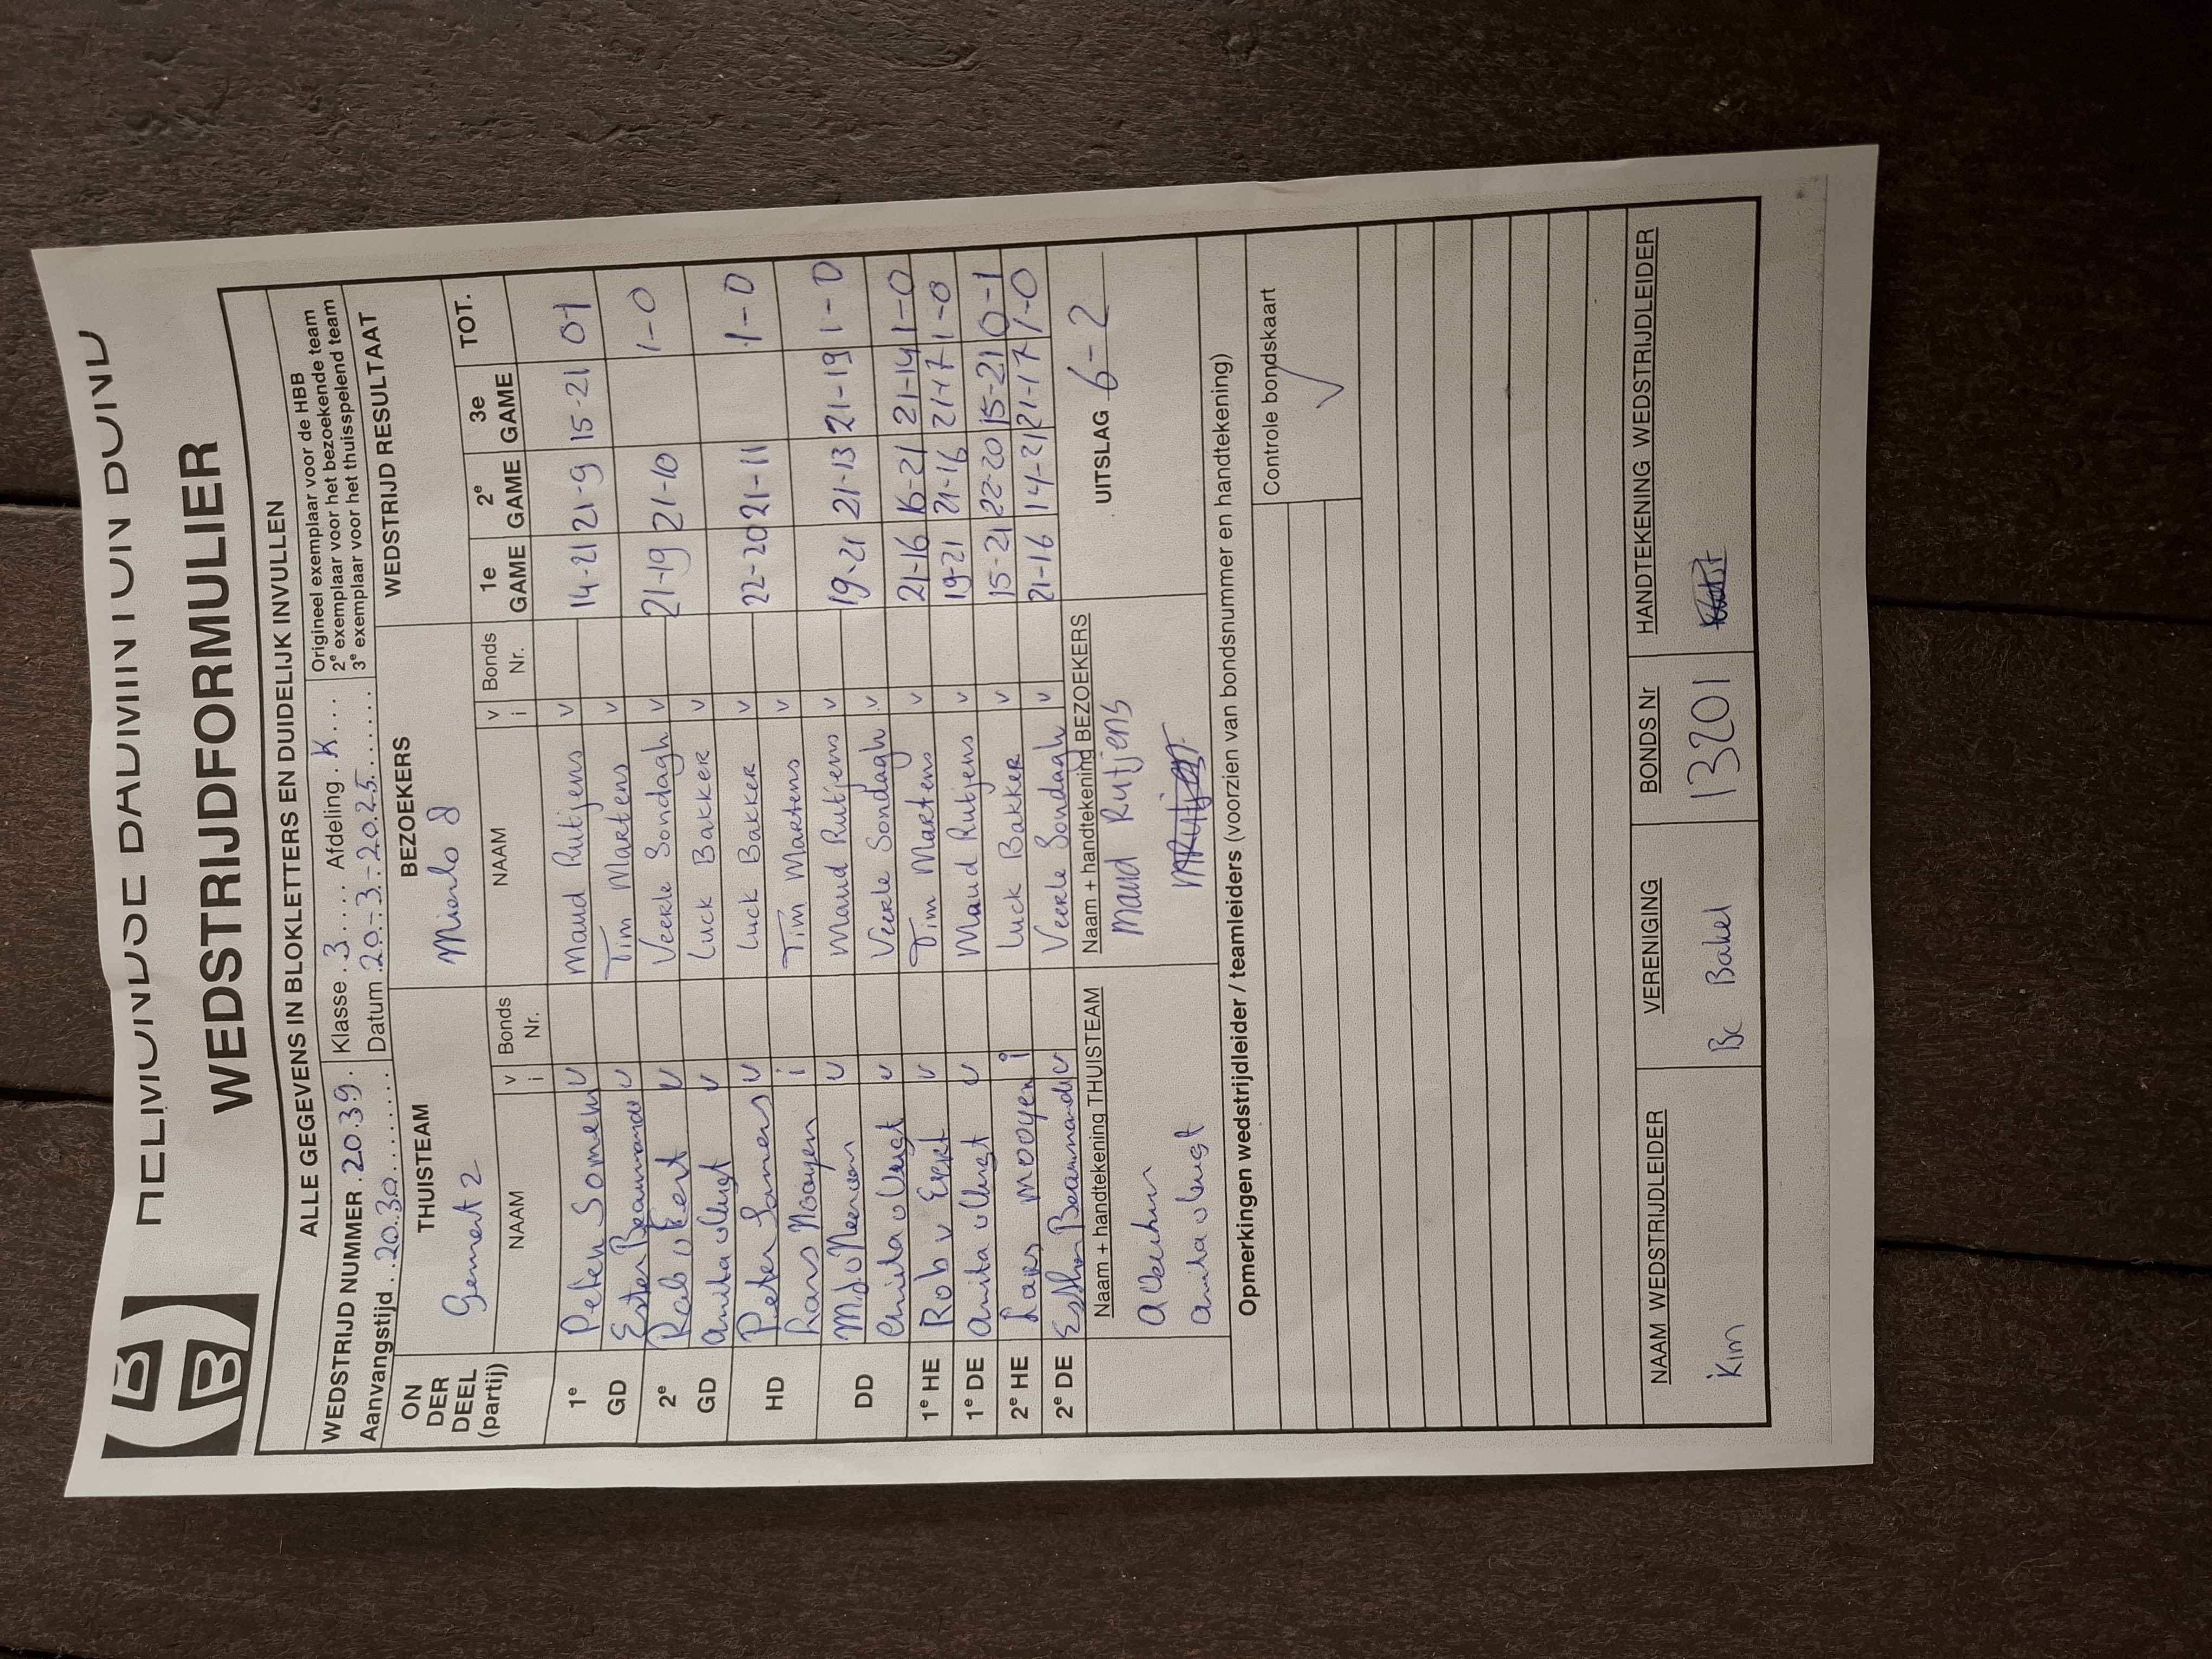 HELMONDSE BADMINTON BOND
HBB
WEDSTRIJDFORMULIER
ALLE GEGEVENS IN BLOKLETTERS EN DUIDELIJK INVULLEN
WEDSTRIJD NUMMER . 2039 . Klasse . 3 .... Afdeling . K ....
Aanvangstijd .. 20.30 ......... Datum . 20.-3.-2025 ........
Origineel exemplaar voor de HBB
2e exemplaar voor het bezoekende team
3e exemplaar voor het thuisspelend team
ON DER DEEL (partij) THUISTEAM BEZOEKERS WEDSTRIJD RESULTAAT
Gemert 2 Mierlo 8
NAAM v i Bonds Nr. NAAM v i Bonds Nr. 1e GAME 2e GAME 3e GAME TOT.
1e Peter Somers v Maud Rutjens v 14-21 21-9 15-21 0-1
GD Ester v Tim Martens v
2e Rob v Eert v Veerle Sondagh v 21-19 21-10 1-0
GD Anita v Vugt v Luck Bakker v
HD Peter Somers v Luck Bakker v 22-20 21-11 1-0
Lars Mooyen i Tim Martens v
DD v Maud Rutjens v 19-21 21-13 21-19 1-0
Anita v Vugt v Veerle Sondagh v
1e HE Rob v Eert v Tim Martens v 21-16 16-21 21-14 1-0
1e DE Anita v Vugt v Maud Rutjens v 19-21 21-16 21-17 1-0
2e HE Lars Mooyen i Luck Bakker v 15-21 22-20 15-21 0-1
2e DE Esther v Veerle Sondagh v 21-16 14-21 21-17 1-0
Naam + handtekening THUISTEAM Naam + handtekening BEZOEKERS
Anita v Vugt
Maud Rutjens
MRutjens
UITSLAG 6-2
Opmerkingen wedstrijdleider / teamleiders (voorzien van bondsnummer en handtekening)
Controle bondskaart
✓
NAAM WEDSTRIJDLEIDER VERENIGING BONDS Nr HANDTEKENING WEDSTRIJDLEIDER
Kim Bc Bakel 13201